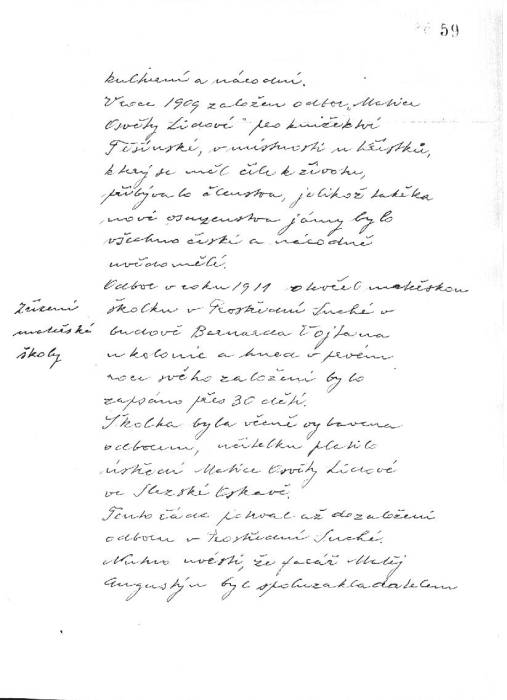 59
kulturní a národní.
V roce 1909 založen odbor „Matice
Osvěty Lidové" pro knížectví
Těšínské, v místnosti u Křístků,
který se měl čile k životu,
přibývalo členstva, jelikož takřka
nové osazenstvo jámy bylo
všechno české a národně
uvědomělé.
Odbor v roku 1911 otevřel mateřskou
Zřízení
mateřské
školy
školku v Prostřední Suché v
budově Bernarda Vojtana
u kolonie a hned v prvém
roce svého založení bylo
zapsáno přes 30 dětí.
Školka byla věcně vybavena
odborem, učitelku platilo
ústředí Matice Osvěty Lidové
ve Slezské Ostravě.
Tento čáda potrval až do založení
odboru v Prostřední Suché.
Nutno uvésti, že farář Matěj
Augustýn byl spoluzakladatelem